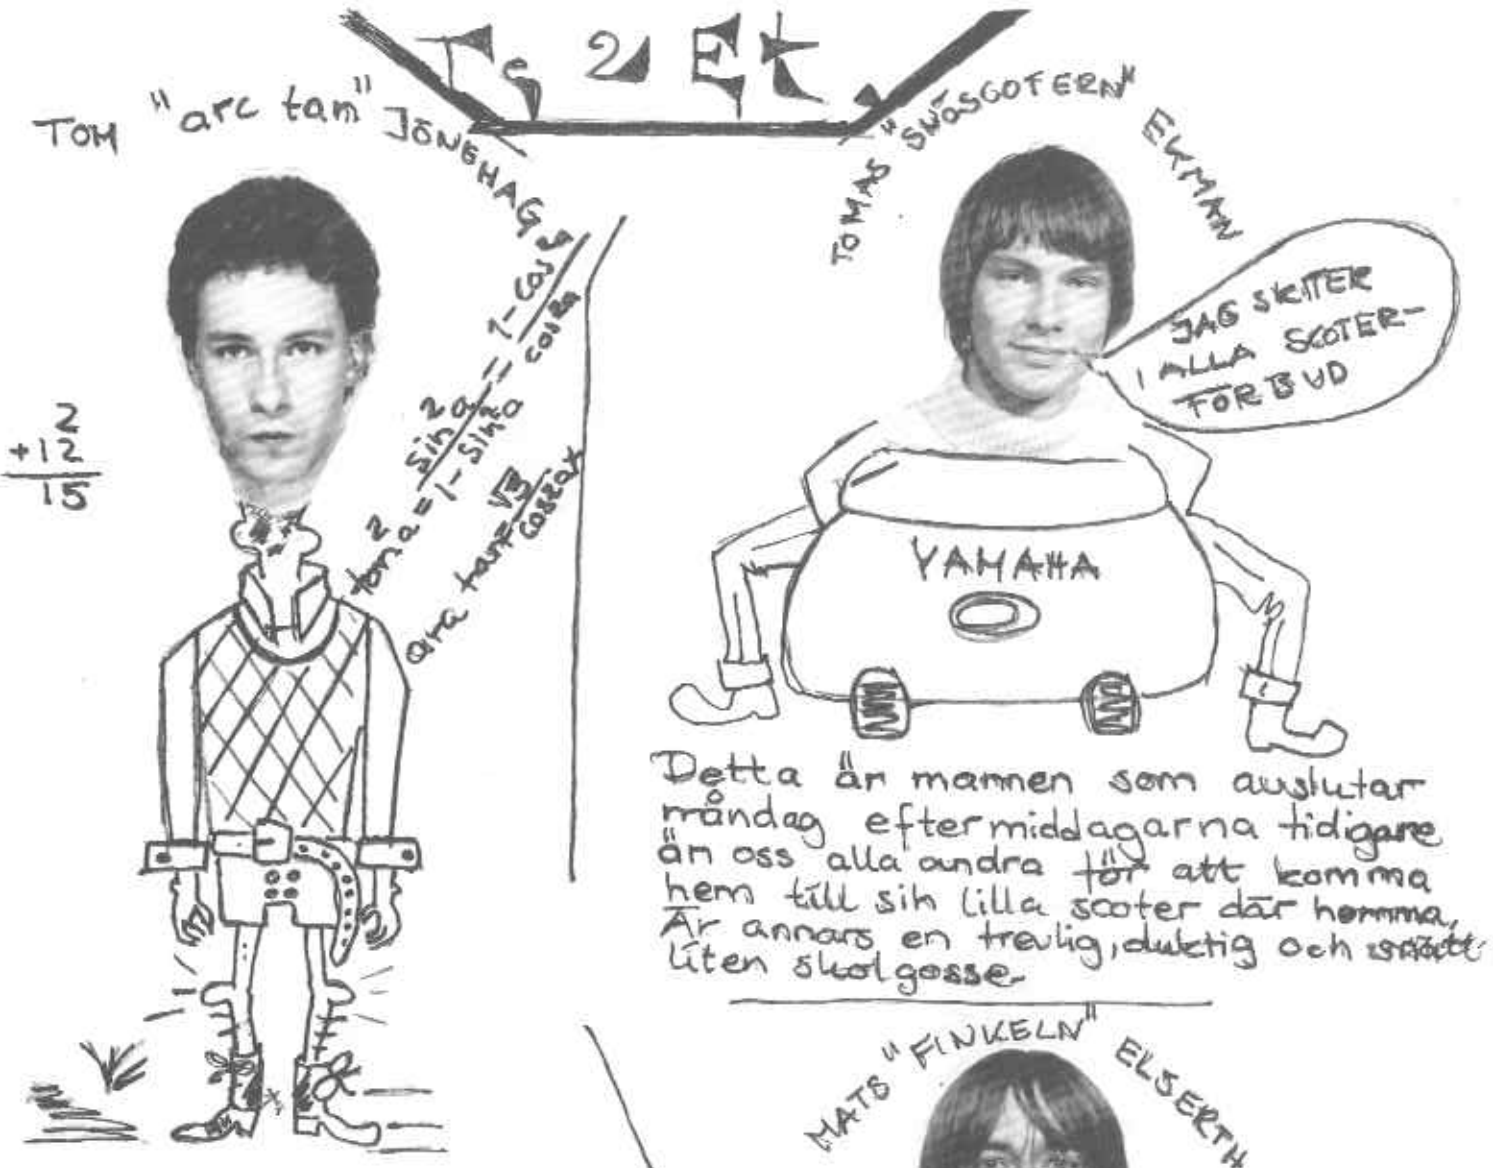 Te 2 Et
TOM "arc tan" JÖNEHAG
2
+12
15
tan²a = sin²a / 1-sin²a = 1-cos²a / cos²a
TOMAS "SNÖSCOTERN" EKMAN
JAG SKITER
I ALLA SCOTER-
FÖRBUD
YAMAHA
Detta är mannen som avslutar
måndag eftermiddagarna tidigare
än oss alla andra för att komma
hem till sin lilla scooter där hemma,
Är annars en trevlig, duktig och snäll
liten skolgosse.
MATS "FINKELN" ELSERTH